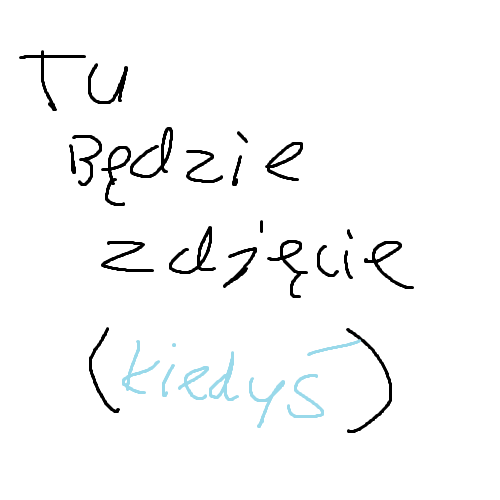 Tu
Będzie
zdjęcie
(kiedyś)